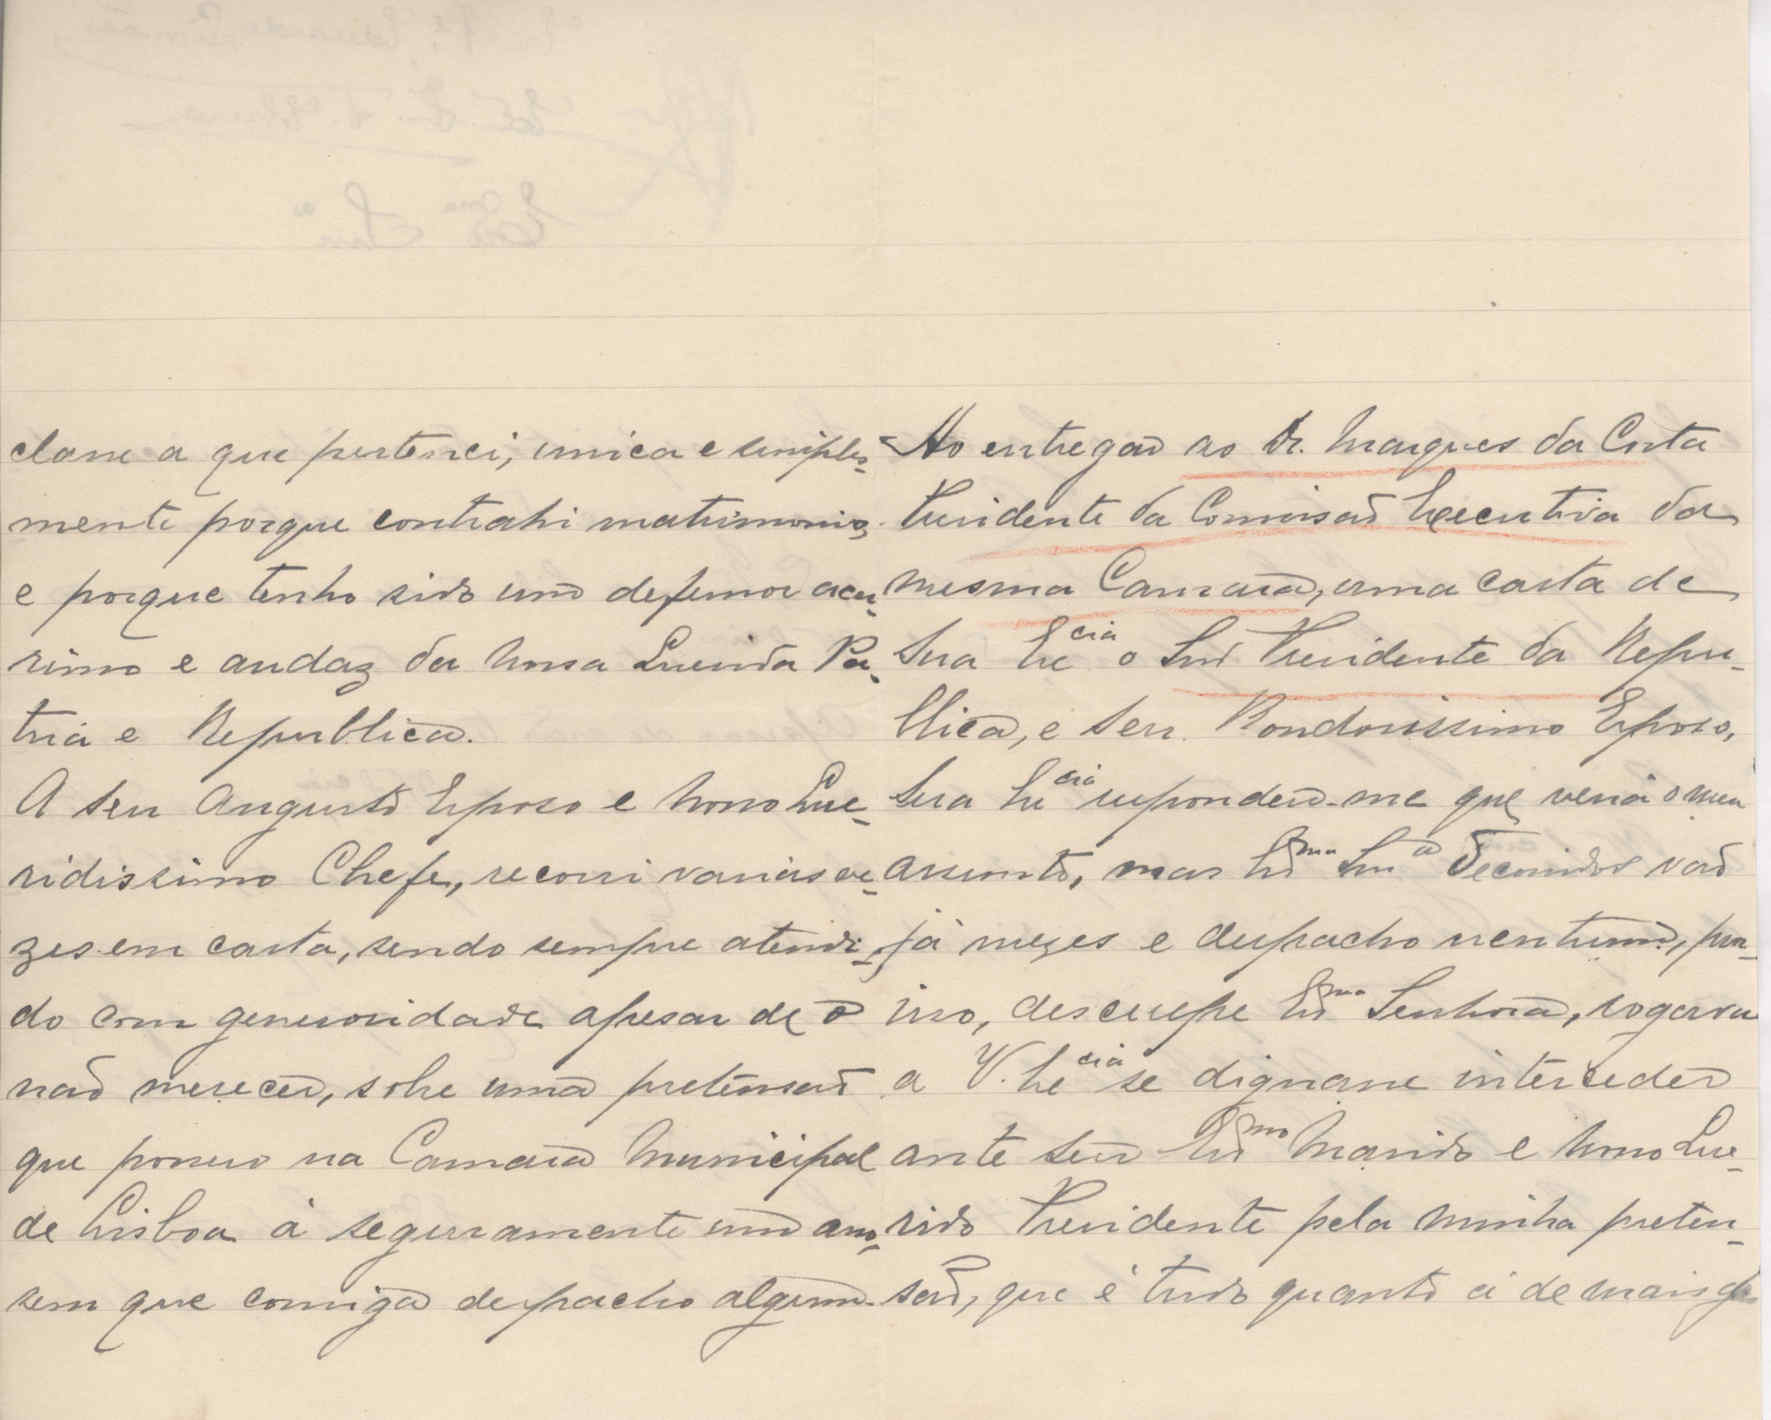 classe a que pertenci, unica e simples-
mente porque contrahi matrimonio,
e porque tenho sido um defensor acer-
rimo e audaz da nossa Querida Pa-
tria e Republica.
A seu Augusto Esposo e nosso Que-
ridissimo Chefe, recorri varias ve-
zes em carta, sendo sempre atendi-
do com generosidade apesar de o
não merecer, sobre uma pretensão
que possuo na Camara Municipal
de Lisboa á seguramente um ano,
sem que consiga despacho algum.
Ao entregar ao Dr. Marques da Costa
Presidente da Comissão Executiva da
mesma Camara, uma carta de
Sua Ex.cia o Snr Presidente da Repu-
blica, e seu Bondosissimo Esposo,
Sua Ex.cia respondeu-me que veria o meu
assunto, mas Ex.ma Snr.a decorridos vão
já mezes e despacho nenhum, por
isso, desculpe Ex.ma Senhora, rogava
a V. Ex.cia se dignasse interceder
ante seu Ex.mo Marido e nosso Que-
rido Presidente pela minha preten-
são, que é tudo quanto á de mais